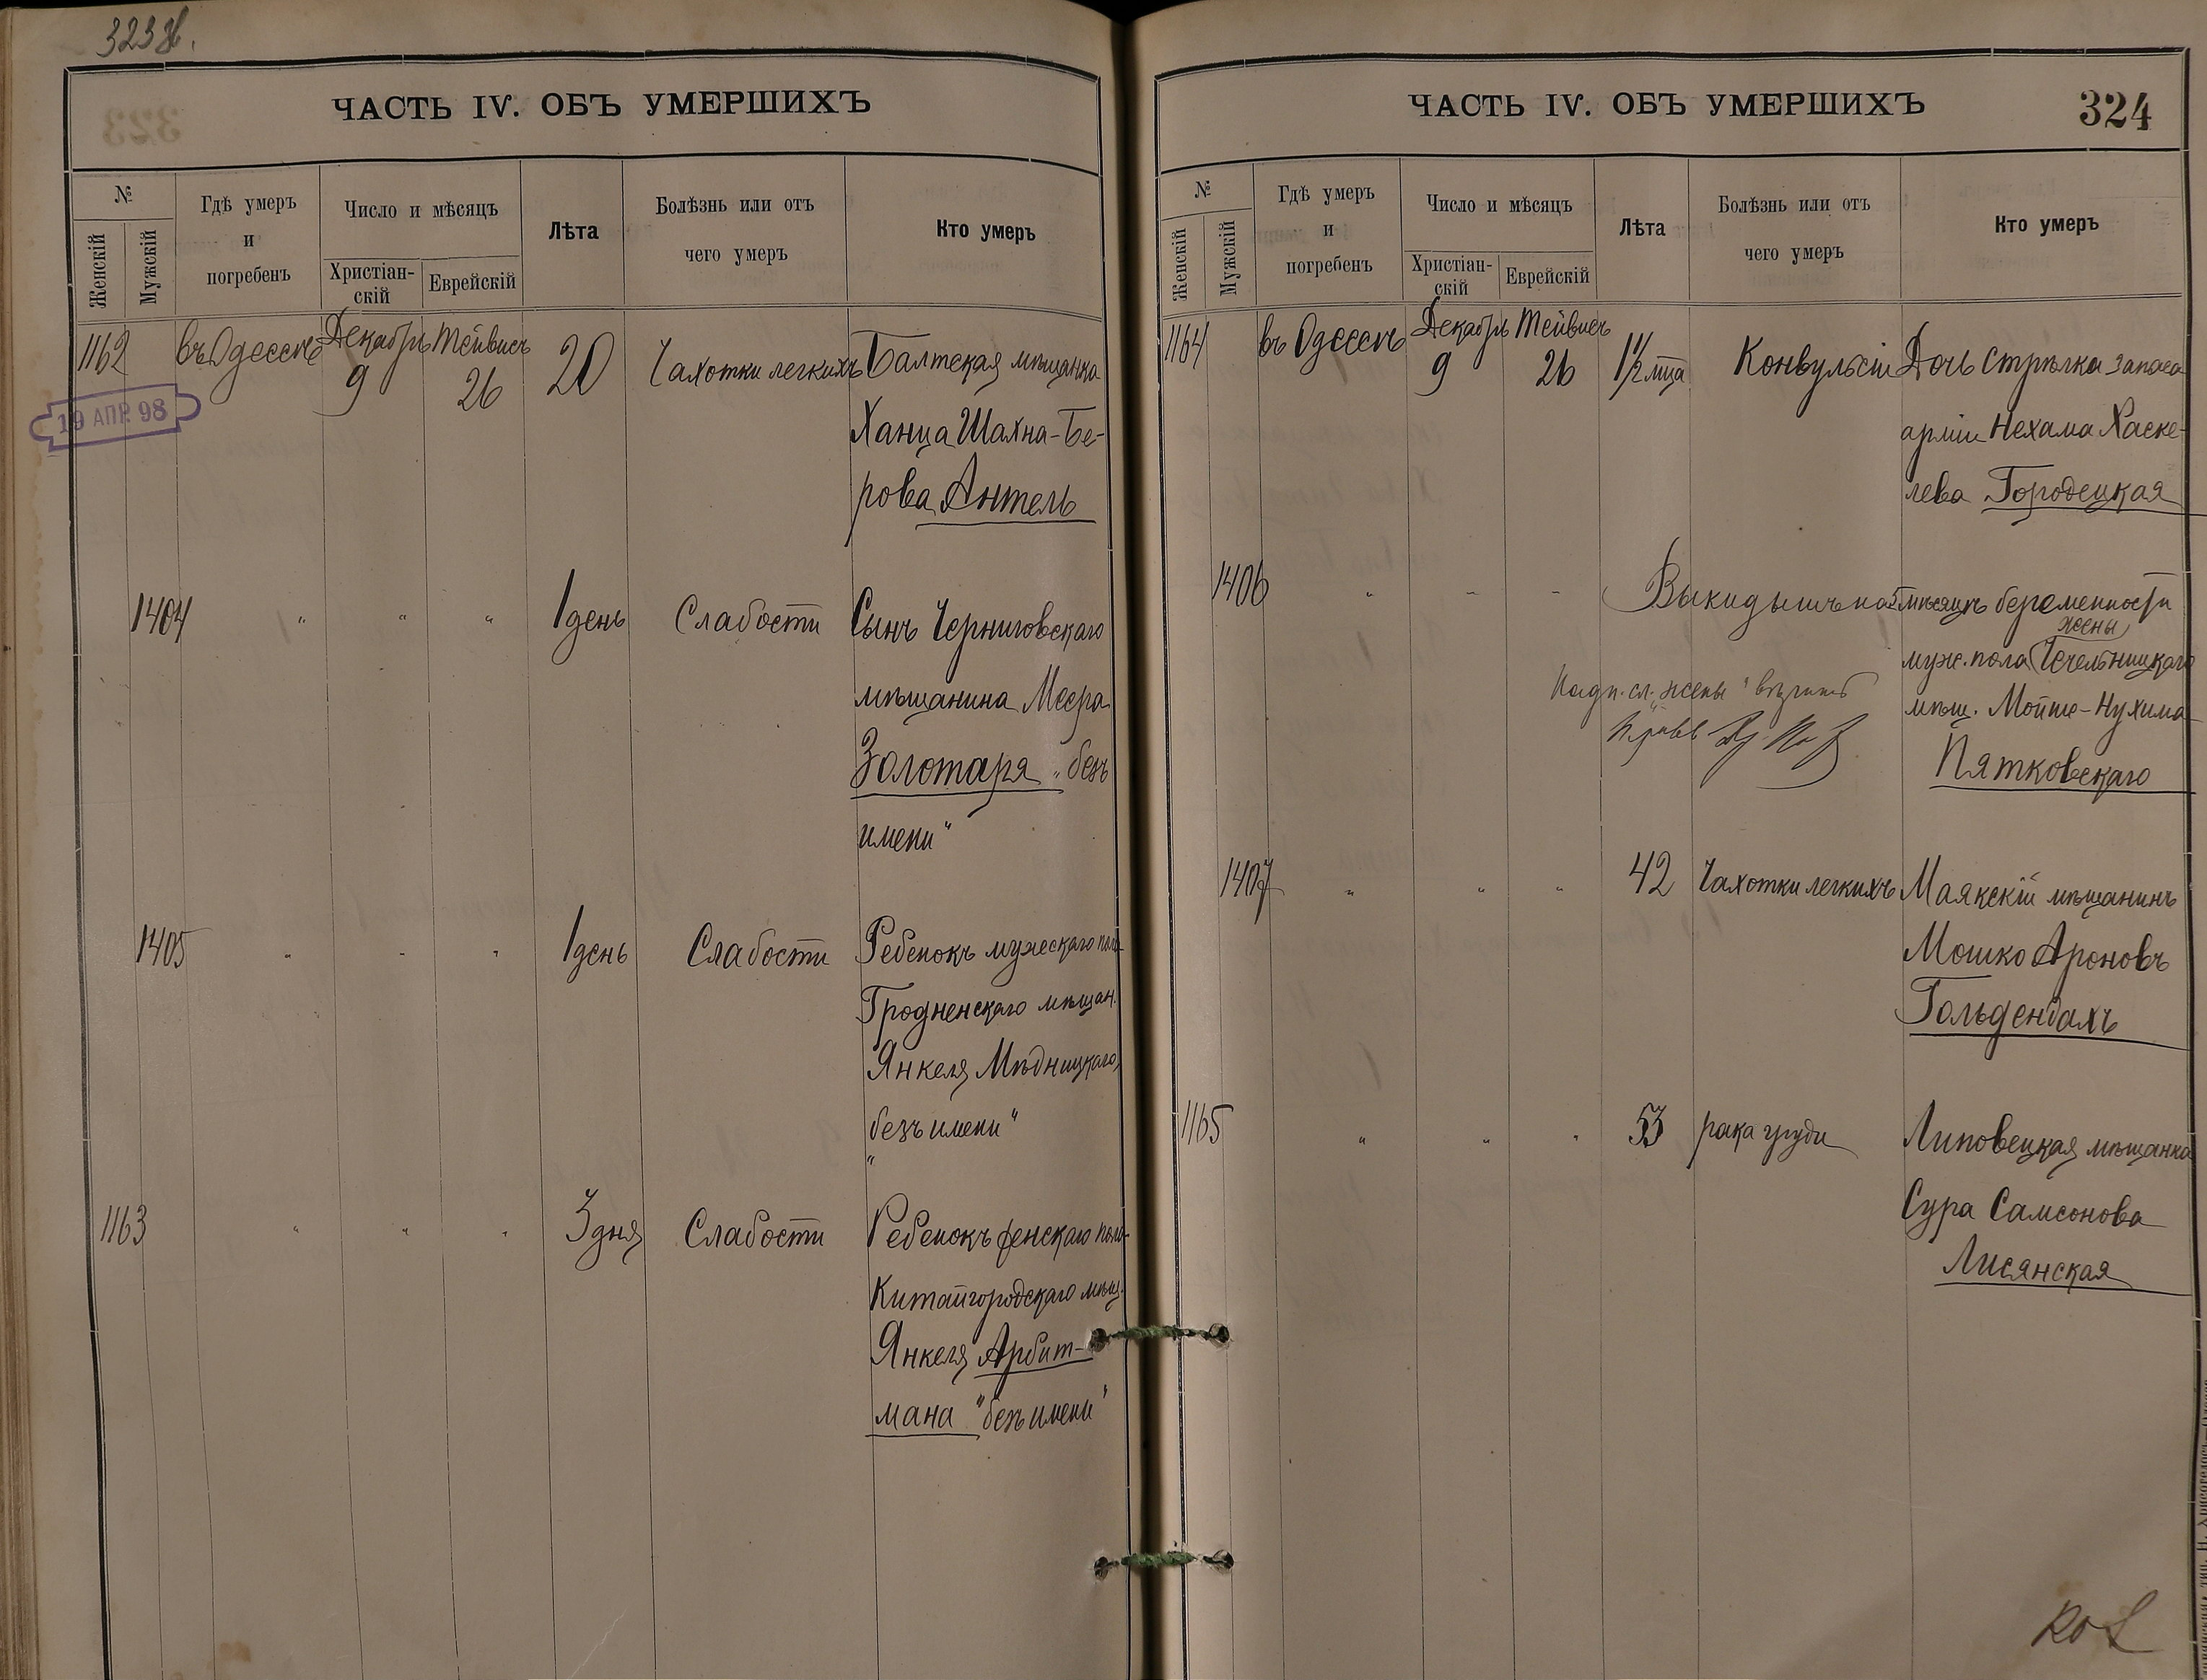 323 об.
ЧАСТЬ IV. ОБЪ УМЕРШИХЪ
№
Женскій
Мужскій
Гдѣ умеръ
и
погребенъ
Число и мѣсяцъ
Христіан-
скій
Еврейскій
Лѣта
Болѣзнь или отъ
чего умеръ
Кто умеръ
1162 въ Одессѣ Декабрь 9 Тейвисъ 26 20 Чахотки легкихъ Балтская мѣщанка
19 АПР. 98
Ханца Шахна-Бе-
рова Антель
1404 " " " 1 день Слабости Сынъ Черниговскаго
мѣщанина Меера
Золотаря „безъ
имени"
1405 " " " 1 день Слабости Ребенокъ мужескаго пола
Гродненскаго мѣщан.
Янкеля Мѣдницкаго,
безъ имени"
"
1163 " " " 3 дня Слабости Ребенокъ женскаго пола
Китайгородскаго мѣщ.
Янкеля Арбит-
мана "безъ имени"
ЧАСТЬ IV. ОБЪ УМЕРШИХЪ
324
№
Женскій
Мужскій
Гдѣ умеръ
и
погребенъ
Число и мѣсяцъ
Христіан-
скій
Еврейскій
Лѣта
Болѣзнь или отъ
чего умеръ
Кто умеръ
1164 въ Одессѣ Декабрь 9 Тейвисъ 26 1½ мца Конвульсіи Дочь стрѣлка запаса
арміи Нехама Хаске-
лева Городецкая
1406 " " " Выкидышъ на 5 мѣсяцѣ беременности
жены
муж. пола Чечельницкаго
Надп. сл. „жены"
мѣщ. Мойше-Нухима
Пятковскаго
1407 " " " 42 Чахотки легкихъ Маякскій мѣщанинъ
Мошко Ароновъ
Гольдендахъ
1165 " " " 53 рака груди Липовецкая мѣщанка
Сура Самсонова
Лисянская